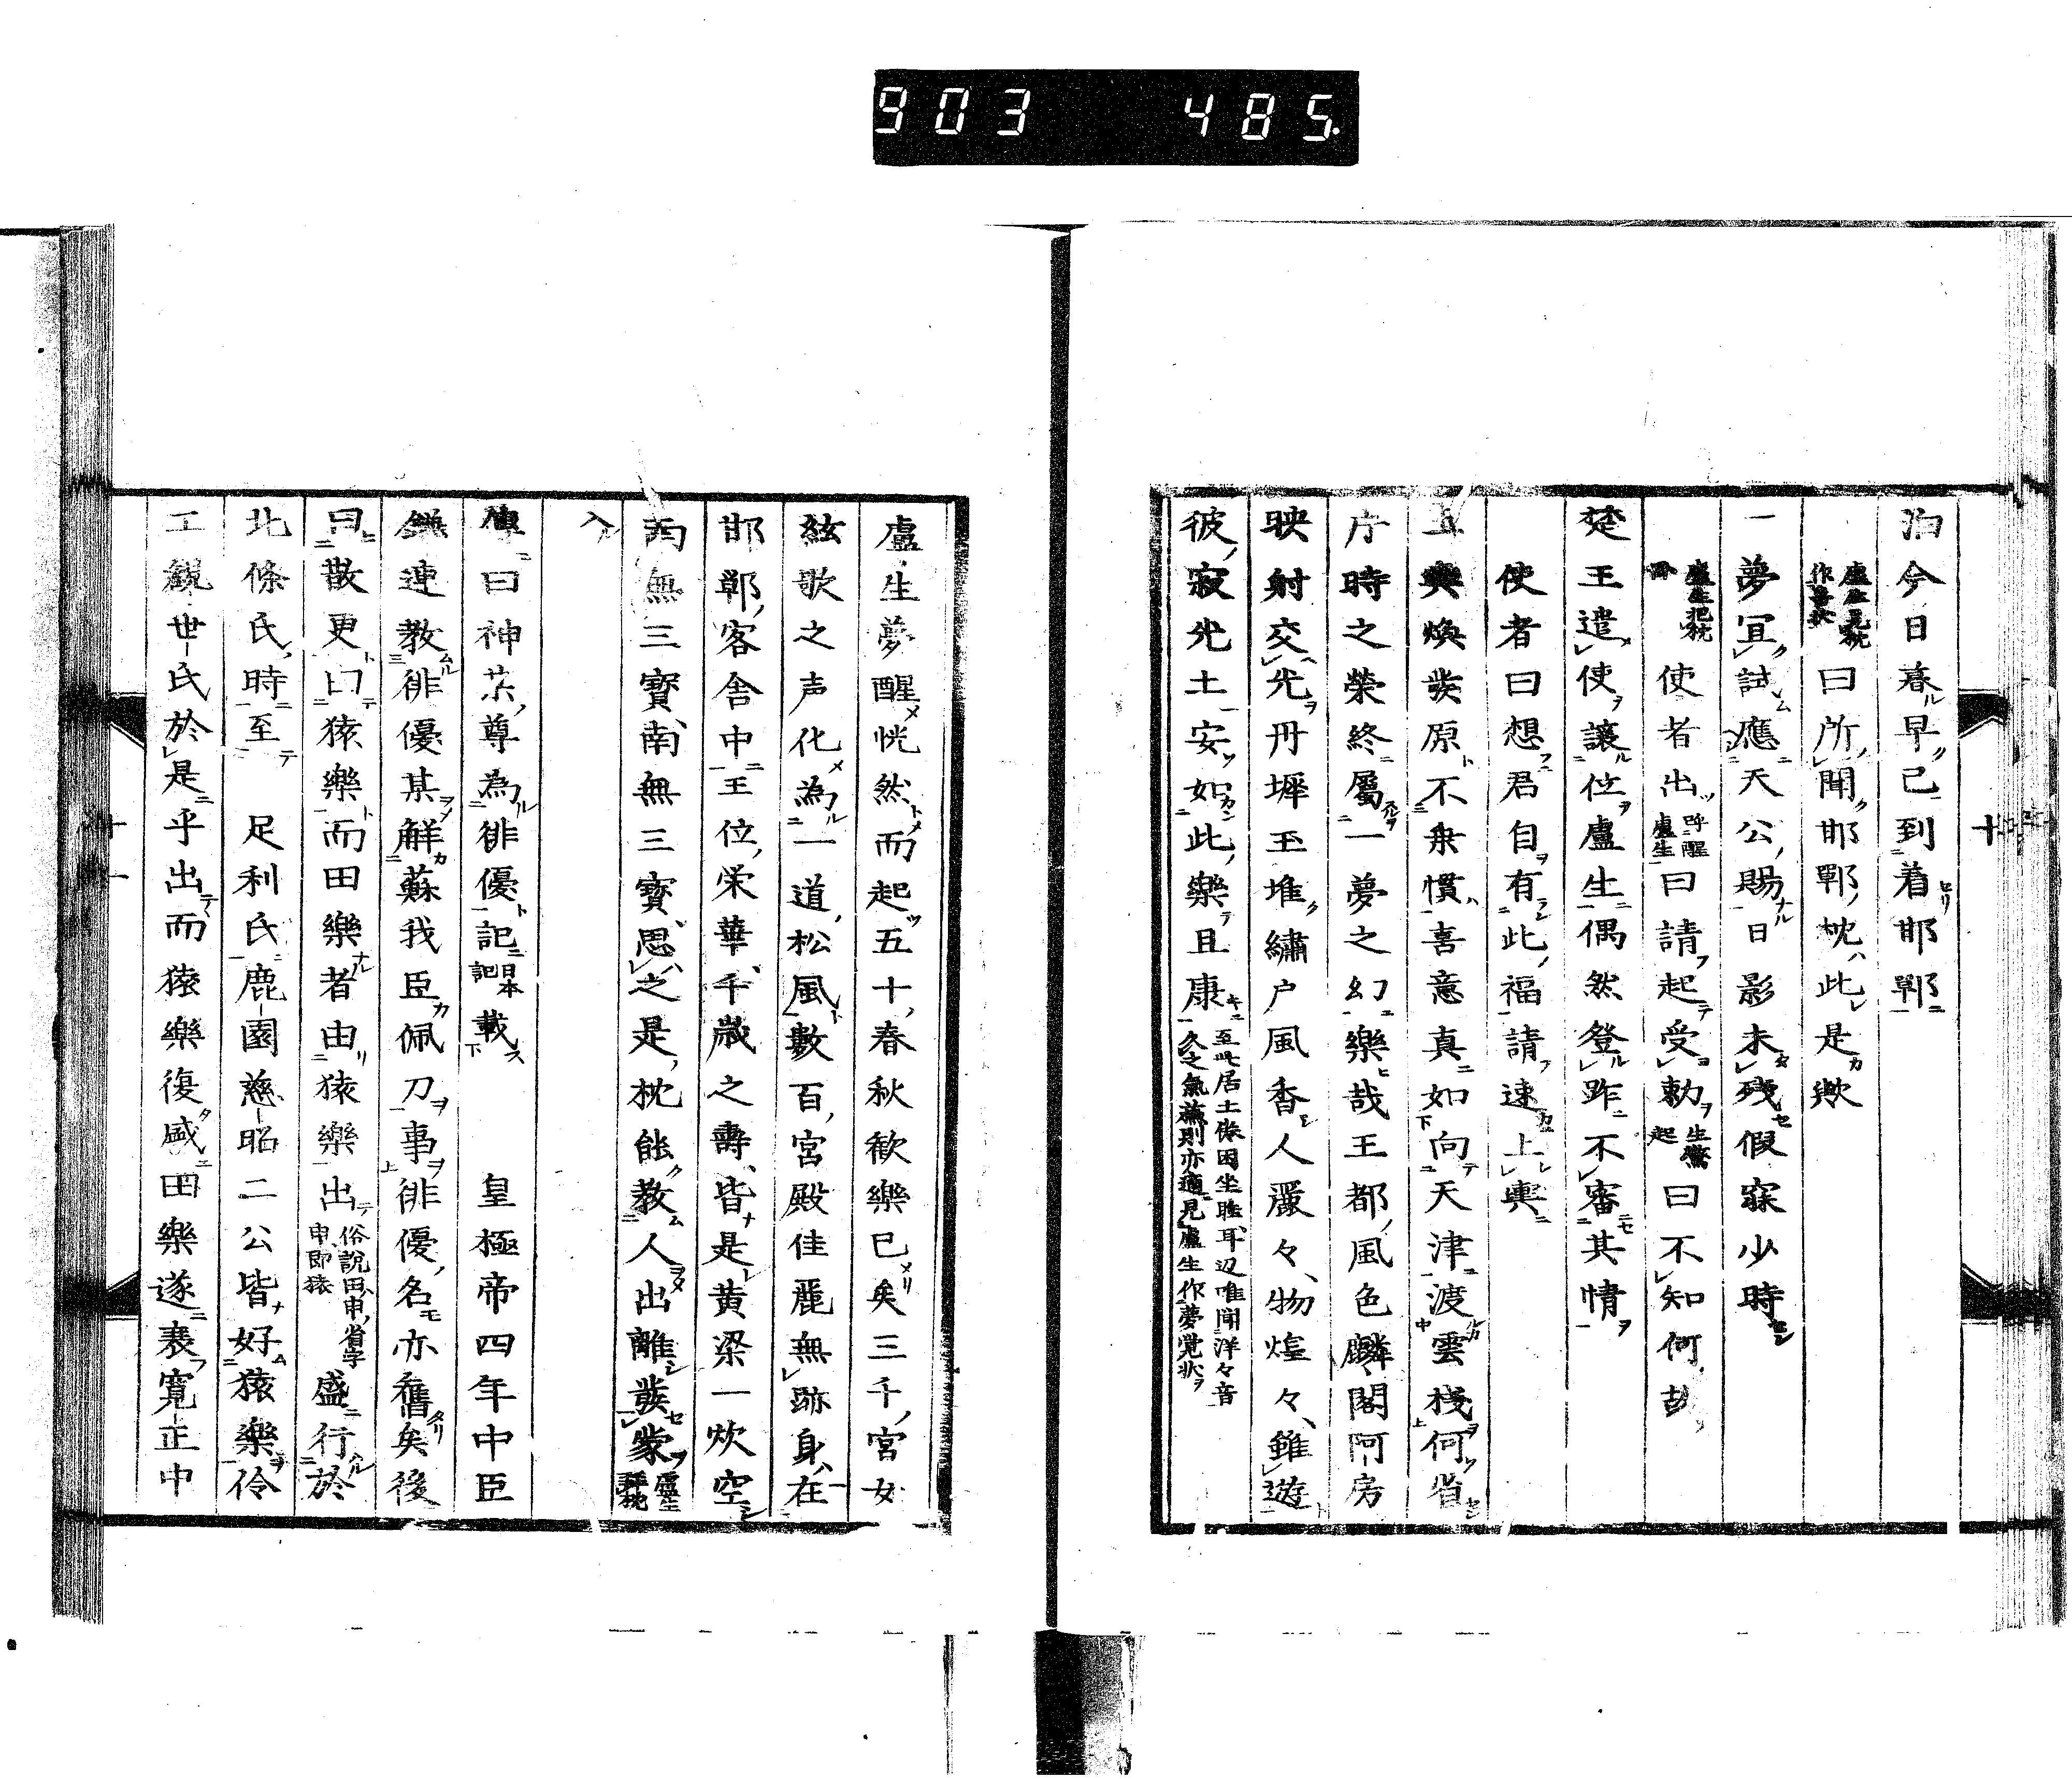 903 485
泊今日春早已到着邯鄲
盧生見枕作喜狀曰所聞邯鄲枕此是歟
一夢冝試應天公賜日影未殘假寐少時
盧生把枕使者出呼醒盧生曰請起受勅生驚起曰不知何
楚王遣使讓位盧生偶然登昨不審其情
使者曰想君自有此福請速上輿
玉輿煥發原不乗慣喜意真如向天津渡雲棧何省
片時之榮終屬一夢之幻樂哉王都風色麟閣阿房
映射交光丹墀玉堆繡户風香人麗々物煌々雖遊
彼寂光土安如此樂且康至此居士倦困坐睡耳辺唯聞洋々音久之氣蘇則亦適見盧生作夢覚狀
十
盧生夢醒恍然而起五十春秋歓樂已矣三千宮女
絃歌之声化為一道松風數百宮殿佳麗無跡身在
邯鄲客舎中王位栄華千歳之壽皆是黄粱一炊空
南無三寶南無三寶思之是枕能教人出離發蒙盧生拜枕
入
傳曰神代尊為俳優記日本記載皇極帝四年中臣
鎌連教俳優某解蘇我臣佩刀事俳優名亦舊矣後
曰散更曰猿樂而田樂者由猿樂出俗說田申省字申即猿盛行於
北條氏時至足利氏鹿園慈昭二公皆好猿樂伶
工観世氏於是乎出而猿樂復盛田樂遂衰寛正中
十一